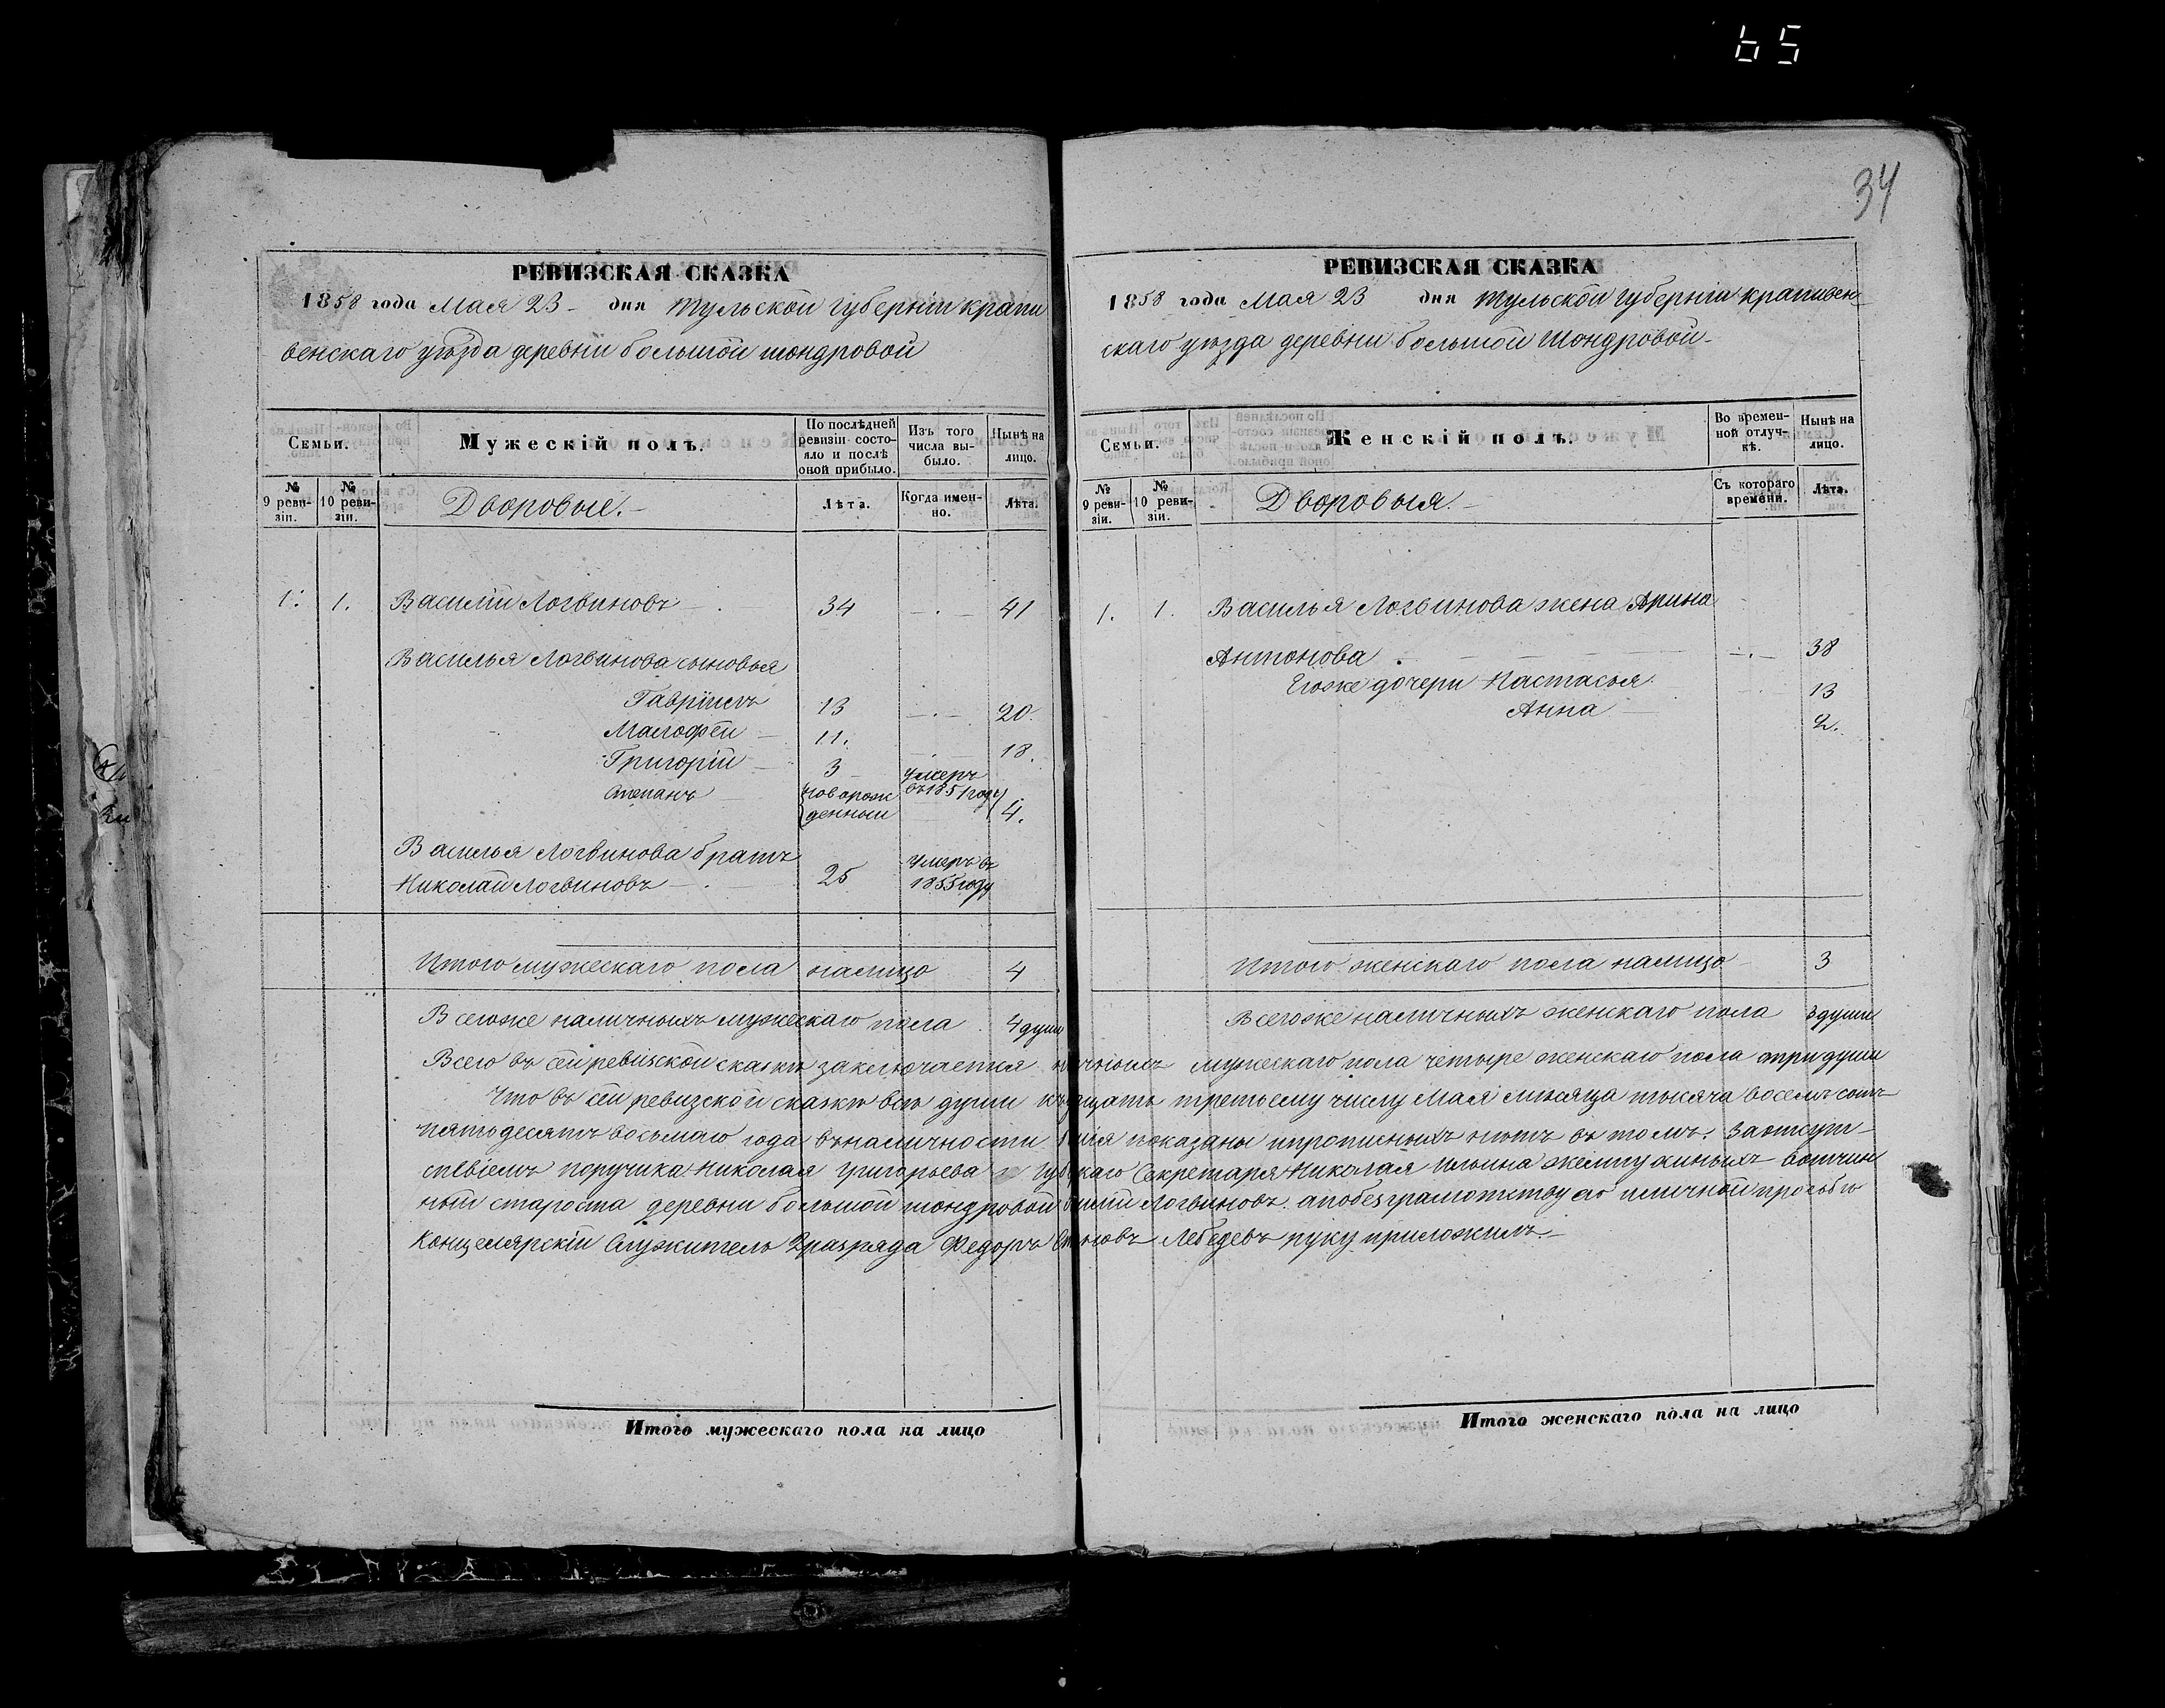 65
34
РЕВИЗСКАЯ СКАЗКА
1858 года Мая 23 - дня Тульской губерніи крапи
венскаго уѣзда деревни большой шондровой
Семьи.
Мужескій полъ.
По послѣдней ревизіи состояло и послѣ оной прибыло.
Изъ того числа выбыло.
Нынѣ на лицо.
№ 9 ревизіи.
№ 10 ревизіи.
Дворовые.-
Лѣта.
Когда именно.
Лѣта.
1. 1. Василій Логвиновъ 34 41
Василья Логвинова сыновья
Гаврилъ 13 20.
Малофей 11. 18.
Григорій 3 умеръ
въ 1851 году
Степанъ новорож
денный 4.
Василья Логвинова братъ
Николай Логвиновъ 25 умеръ въ
1855 году
Итого мужескаго пола налицо 4
Всегоже наличныхъ мужескаго пола 4 души
РЕВИЗСКАЯ СКАЗКА
1858 года Мая 23 дня Тульской губерніи крапивен-
скаго уѣзда деревни большой Шондровой-
Семьи.
Женскій полъ.
Во временной отлучкѣ.
Нынѣ на лицо.
№ 9 ревизіи.
№ 10 ревизіи.
Дворовыя.-
Съ котораго времени.
Лѣта.
1. 1. Василья Логвинова жена Арина
Антонова 38
Егоже дочери Настасья 13
Анна 2.
Итого женскаго пола налицо 3
Всегоже наличныхъ женскаго пола 3 души
Всего въ сей ревизской сказкѣ заключается мужескаго пола четыре женскаго пола три души
Что въ сей ревизской сказкѣ всѣ души третьему числу Мая мѣсяца тысяча восемъ сотъ
пятьдесятъ восьмаго года въ наличности показаны ипрописныхъ нѣтъ въ томъ. За отсут-
ствіемъ поручика Николая Григорьева Секретаря Николая Ильина вотчин
ный староста деревни большой шондровой Логвиновъ. а побезграмотству его иличной прозьбѣ
Концелярскій Служитель 2 разряда Федоръ Лебедевъ руку приложилъ.-
Итого мужескаго пола на лицо
Итого женскаго пола на лицо